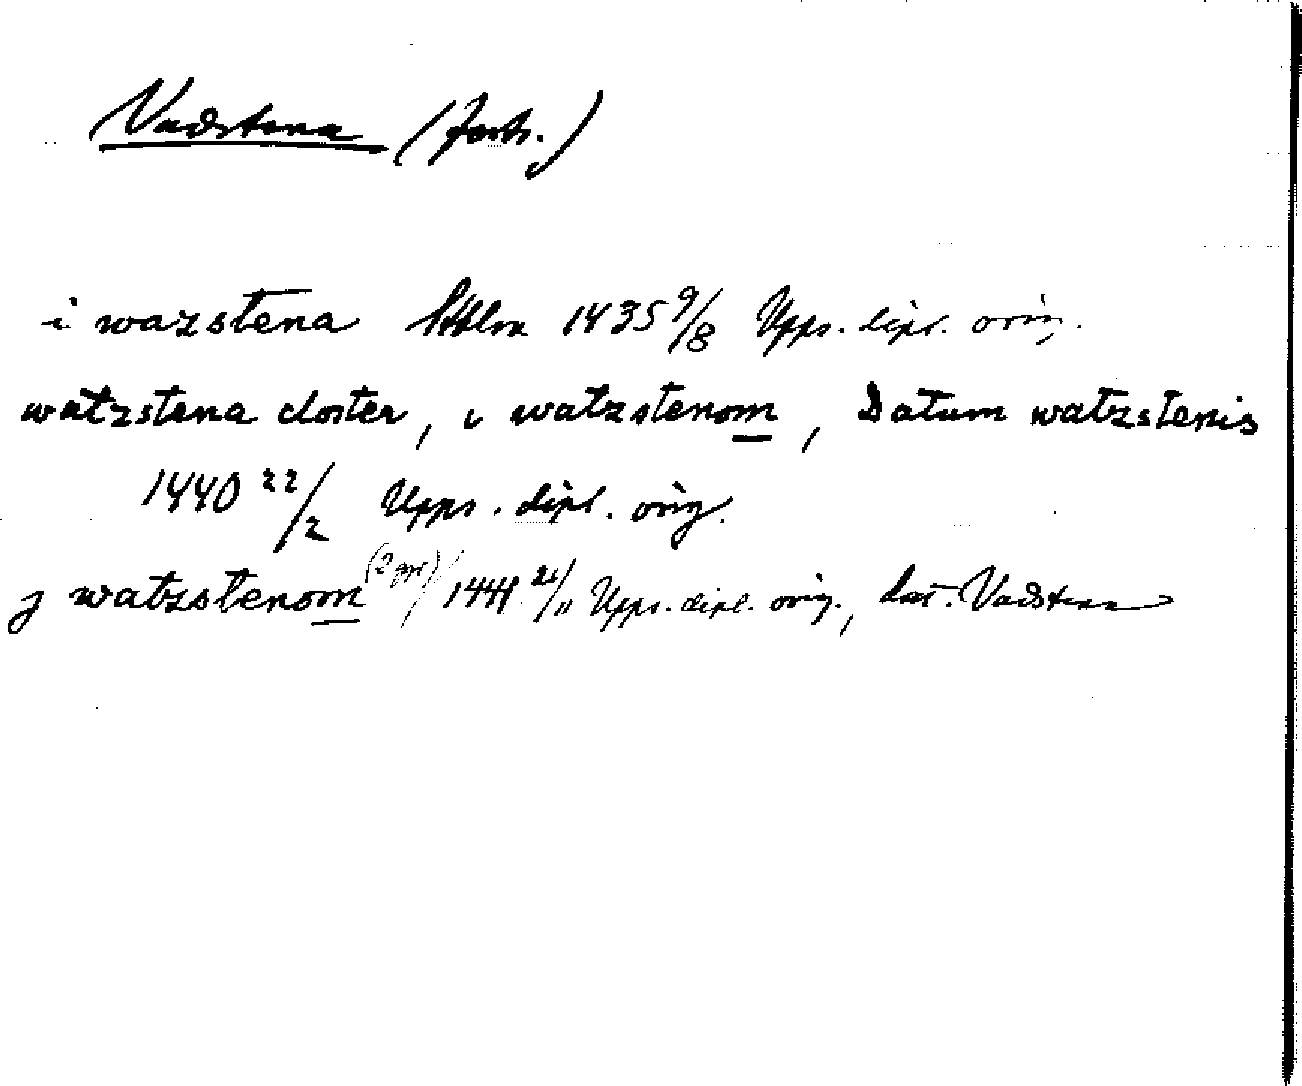 Vadstena (forts.)
i wazstena Sthlm 1435 9/8 Upps. dipl. orig.
watzstena closter, i watzstenom, Datum watzstenis
1440 22/2 Upps. dipl. orig.
j watzstenom (2 ggr) 1441 21/11 Upps. dipl. orig., dat. Vadstena